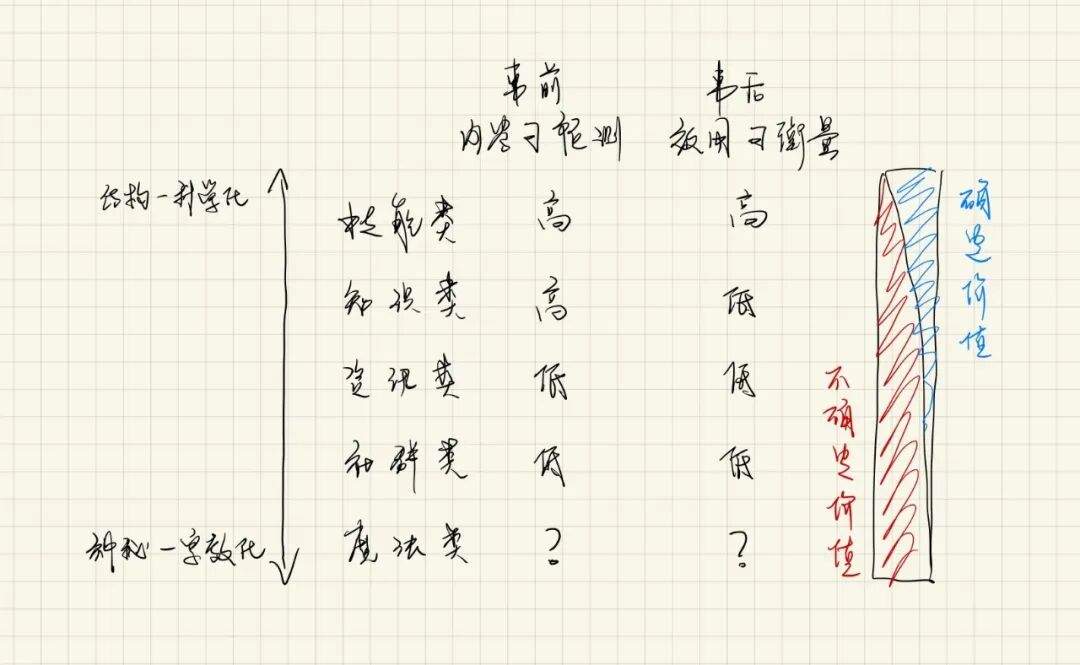 事前 事后
内容可预测 效用可衡量
结构—科学化
技能类 高 高
知识类 高 低
资讯类 低 低
社群类 低 低
神秘—宗教化
魔法类 ? ?
确定价值
不确定价值